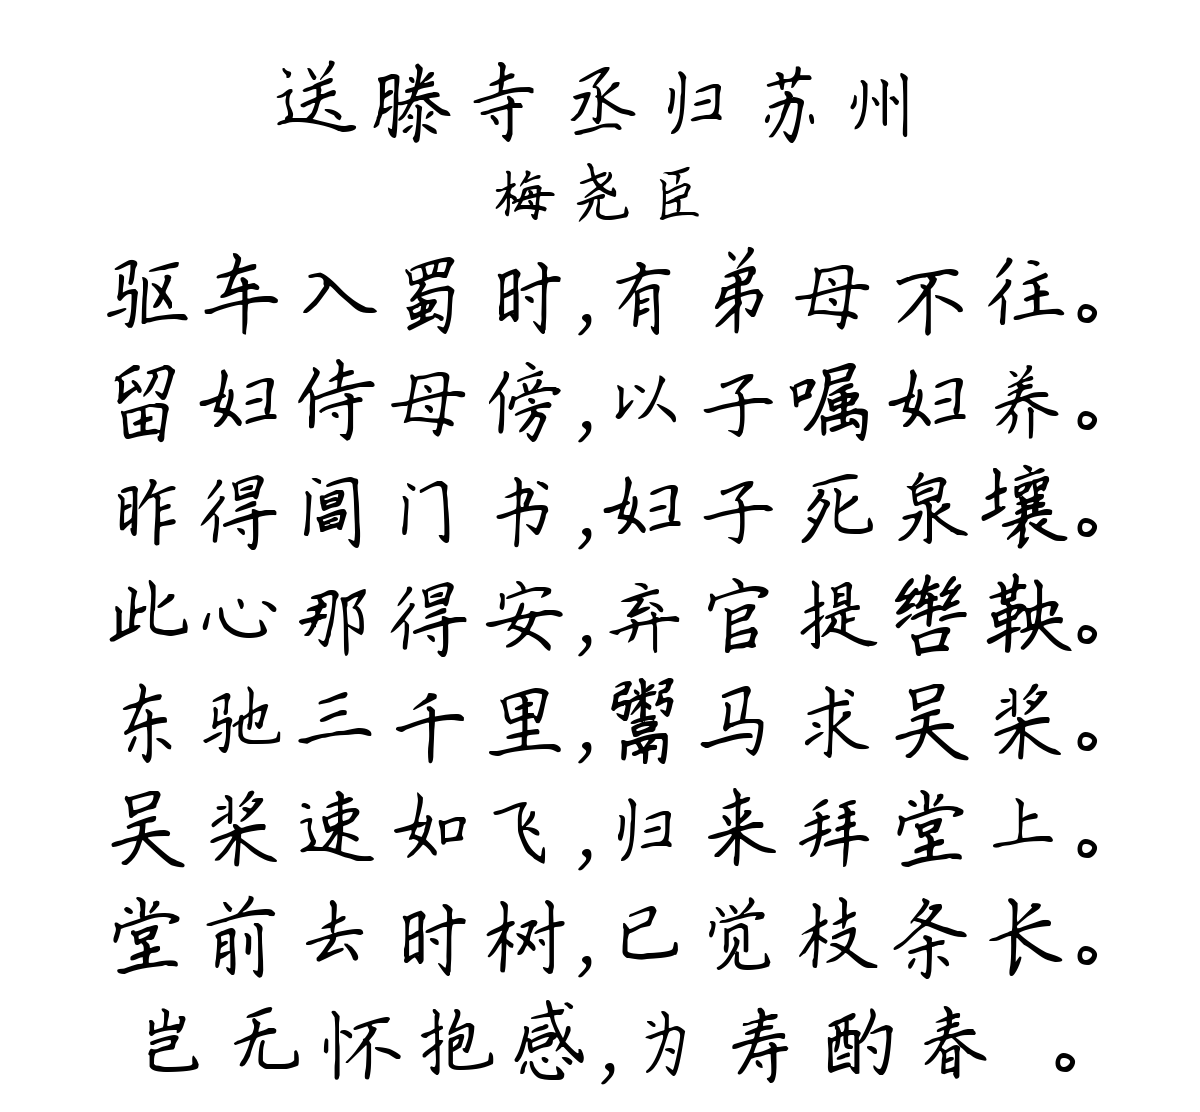 送滕寺丞归苏州
梅尧臣
驱车入蜀时,有弟母不往。
留妇侍母傍,以子嘱妇养。
昨得阊门书,妇子死泉壤。
此心那得安,弃官提辔鞅。
东驰三千里,鬻马求吴桨。
吴桨速如飞,归来拜堂上。
堂前去时树,已觉枝条长。
岂无怀抱感,为寿酌春 。